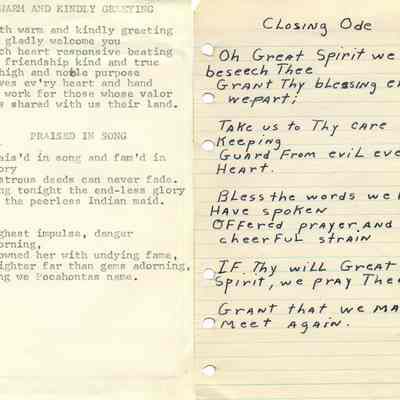 WARM AND KINDLY GREETING
th warm and kindly greeting
gladly welcome you
ch heart responsive beating
friendship kind and true
high and noble purpose
ves ev'ry heart and hand
work for those whose valor
s shared with us their land.
PRAISED IN SONG
ais'd in song and fam'd in
ory
strous deeds can never fade.
ng tonight the end-less glory
the peerless Indian maid.
ghest impulse, danger
orning,
owned her with undying fame,
ighter far than gems adorning,
ng we Pocahontas name.
Closing Ode
Oh Great Spirit we
beseech Thee
Grant Thy blessing e
we part;
Take us to Thy care
Keeping
Guard From evil eve
Heart.
Bless the words we h
Have spoken
Offered prayer and
cheerful strain
If Thy will Great
Spirit, we pray Thee
Grant that we ma
Meet again.